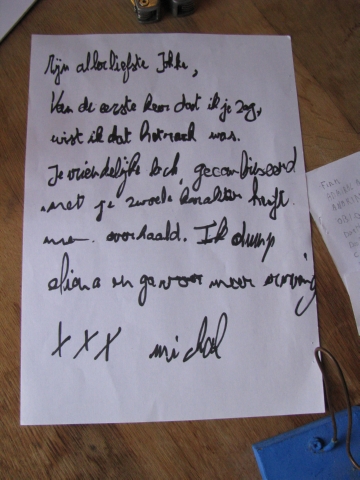 Mijn allerliefste Jokke,
Van de eerste keer dat ik je zag,
wist ik dat het raak was.
Je vriendelijke lach, gecombineerd
met je zwoele karakter heeft
me overhaald. Ik dump
eliana en ga voor meer
XXX michel